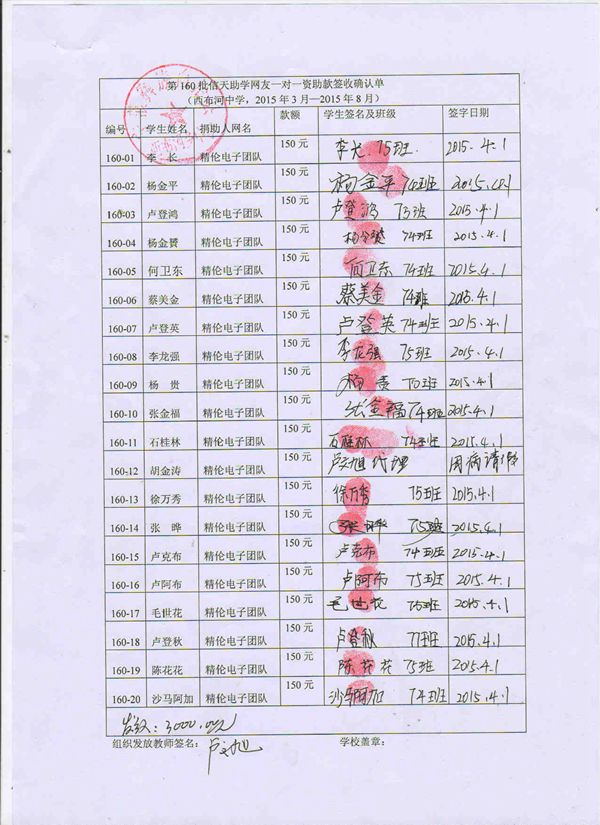 第160批信天助学网友一对一资助款签收确认单
（西布河中学，2015年3月—2015年8月）
编号 学生姓名 捐助人网名 款额 学生签名及班级 签字日期
160-01 李 长 精伦电子团队 150元 李长 75班 2015.4.1
160-02 杨金平 精伦电子团队 150元 杨金平 74班 2015.4.1
160-03 卢登鸿 精伦电子团队 150元 卢登鸿 73班 2015.4.1
160-04 杨金赟 精伦电子团队 150元 74班 2015.4.1
160-05 何卫东 精伦电子团队 150元 何卫东 74班 2015.4.1
160-06 蔡美金 精伦电子团队 150元 蔡美金 74班 2015.4.1
160-07 卢登英 精伦电子团队 150元 卢登英 74班 2015.4.1
160-08 李龙强 精伦电子团队 150元 李龙强 75班 2015.4.1
160-09 杨 贵 精伦电子团队 150元 杨贵 2015.4.1
160-10 张金福 精伦电子团队 150元 张金福 74班 2015.4.1
160-11 石桂林 精伦电子团队 150元 石桂林 74班 2015.4.1
160-12 胡金涛 精伦电子团队 150元 卢文旭代理 因病请假
160-13 徐万秀 精伦电子团队 150元 徐万秀 75班 2015.4.1
160-14 张 晔 精伦电子团队 150元 张晔 75班 2015.4.1
160-15 卢克布 精伦电子团队 150元 卢克布 74班 2015.4.1
160-16 卢阿布 精伦电子团队 150元 卢阿布 75班 2015.4.1
160-17 毛世花 精伦电子团队 150元 毛世花 75班 2015.4.1
160-18 卢登秋 精伦电子团队 150元 卢登秋 77班 2015.4.1
160-19 陈花花 精伦电子团队 150元 陈花花 75班 2015.4.1
160-20 沙马阿加 精伦电子团队 150元 沙马阿加 74班 2015.4.1
发款：3000.00元
组织发放教师签名： 卢文旭 学校盖章：